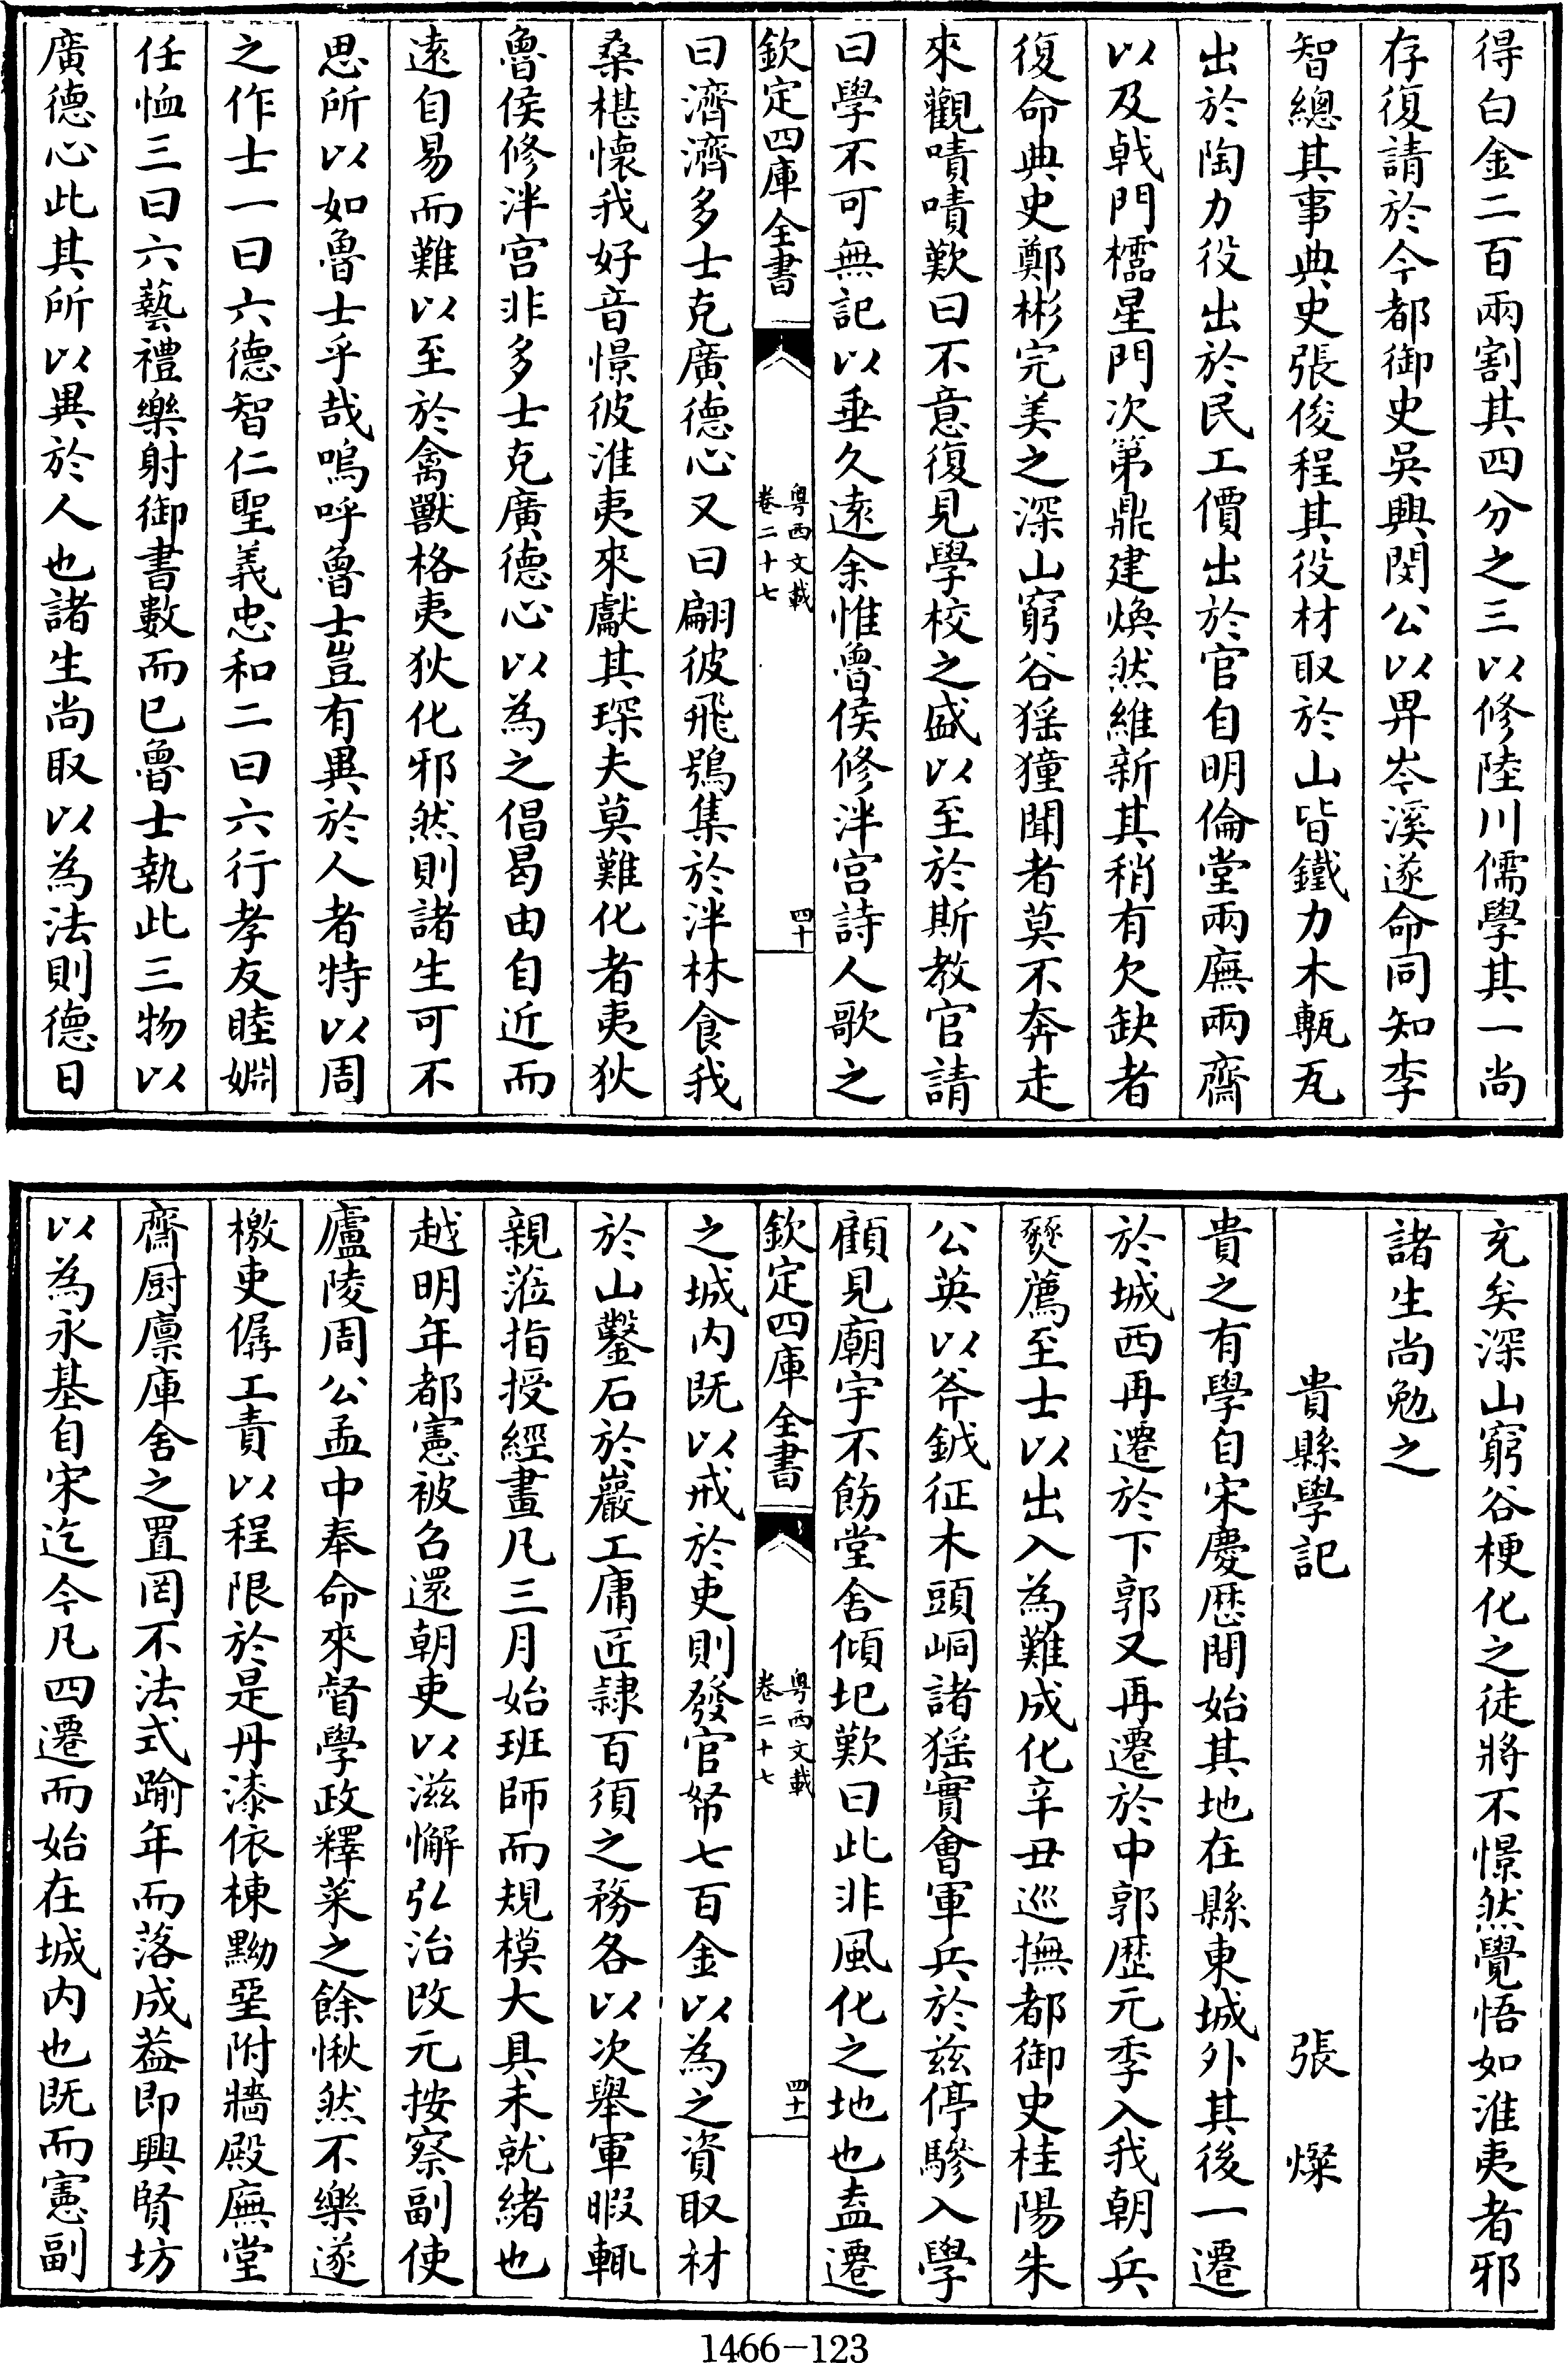 得白金二百兩割其四分之三以修陸川儒學其一尚
存復請於今都御史吳興閔公以畀岑溪遂命同知李
智總其事典史張俊程其役材取於山皆鐵力木甎瓦
出於陶力役出於民工價出於官自明倫堂兩廡兩齋
以及戟門櫺星門次第鼎建煥然維新其稍有欠缺者
復命典史鄭彬完美之深山窮谷猺獞聞者莫不奔走
來觀嘖嘖歎曰不意復見學校之盛以至於斯教官請
曰學不可無記以垂久遠余惟魯侯修泮宫詩人歌之
欽定四庫全書
粤西文載
卷二十七
四十
曰濟濟多士克廣德心又曰翩彼飛鴞集於泮林食我
桑椹懷我好音憬彼淮夷來獻其琛夫莫難化者夷狄
魯侯修泮宫非多士克廣德心以為之倡曷由自近而
遠自易而難以至於禽獸格夷狄化邪然則諸生可不
思所以如魯士乎哉嗚呼魯士豈有異於人者特以周
之作士一曰六德智仁聖義忠和二曰六行孝友睦婣
任恤三曰六藝禮樂射御書數而已魯士執此三物以
廣德心此其所以異於人也諸生尚取以為法則德日
充矣深山窮谷梗化之徒將不憬然覺悟如淮夷者邪
諸生尚勉之
貴縣學記 張燦
貴之有學自宋慶歴間始其地在縣東城外其後一遷
於城西再遷於下郭又再遷於中郭歴元季入我朝兵
燹薦至士以出入為難成化辛丑巡撫都御史桂陽朱
公英以斧鉞征木頭峒諸猺實會軍兵於兹停驂入學
顧見廟宇不飭堂舍傾圮歎曰此非風化之地也盍遷
欽定四庫全書
粤西文載
卷二十七
四十一
之城内既以戒於吏則發官帑七百金以為之資取材
於山鑿石於巖工庸匠隸百須之務各以次舉軍暇輒
親涖指授經畫凡三月始班師而規模大具未就緒也
越明年都憲被召還朝吏以滋懈弘治改元按察副使
廬陵周公孟中奉命來督學政釋菜之餘愀然不樂遂
檄吏僝工責以程限於是丹漆依棟黝堊附牆殿廡堂
齋厨廪庫舍之置罔不法式踰年而落成葢即興賢坊
以為永基自宋迄今凡四遷而始在城内也既而憲副
1466-123